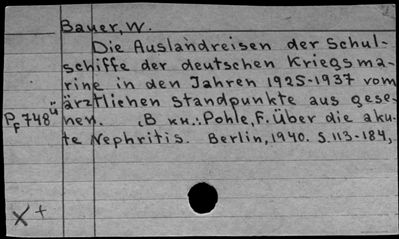 Bauer, W.
Die Auslandreisen der Schul-
schiffe der deutschen Kriegsma-
rine in den Jahren 1925-1937 vom
ärztlichen Standpunkte aus gese-
PF748ü nen. (В кн.: Pohle, F. Über die aku-
te Nephritis. Berlin, 1940. S. 113-184,
X +